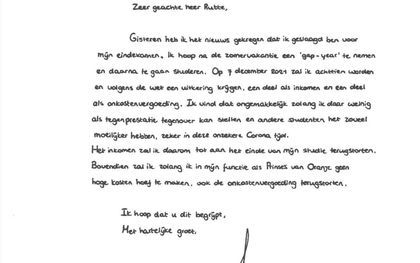 Zeer geachte heer Rutte,
Gisteren heb ik het nieuws gekregen dat ik geslaagd ben voor
mijn eindexamen. Ik hoop na de zomervakantie een 'gap-year' te nemen
en daarna te gaan studeren. Op 7 december 2021 zal ik achttien worden
en volgens de wet een uitkering krijgen, een deel als inkomen en een deel
als onkostenvergoeding. Ik vind dat ongemakkelijk zolang ik daar weinig
als tegenprestatie tegenover kan stellen en andere studenten het zoveel
moeilijker hebben, zeker in deze onzekere Corona tijd.
Het inkomen zal ik daarom tot aan het einde van mijn studie terugstorten.
Bovendien zal ik zolang ik in mijn functie als Prinses van Oranje geen
hoge kosten hoef te maken, ook de onkostenvergoeding terugstorten.
Ik hoop dat u dit begrijpt,
Met hartelijke groet,